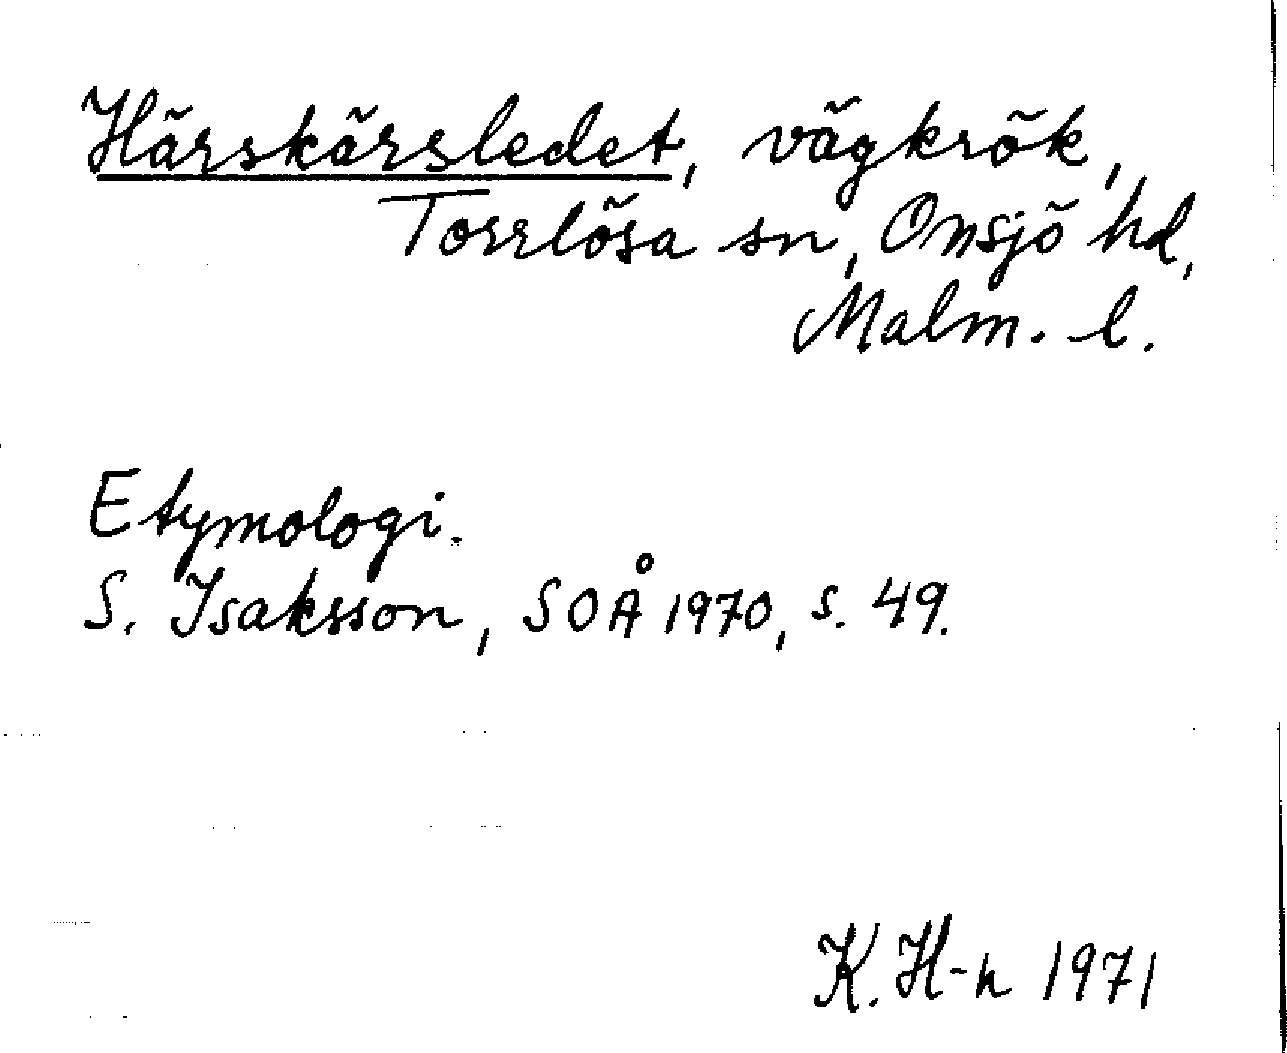 Härskärsledet, vägkrök,
Torrlösa sn, Onsjö hd,
Malm. l.
Etymologi.
S. Isaksson, SOÅ 1970, s. 49.
K. H-n 1971